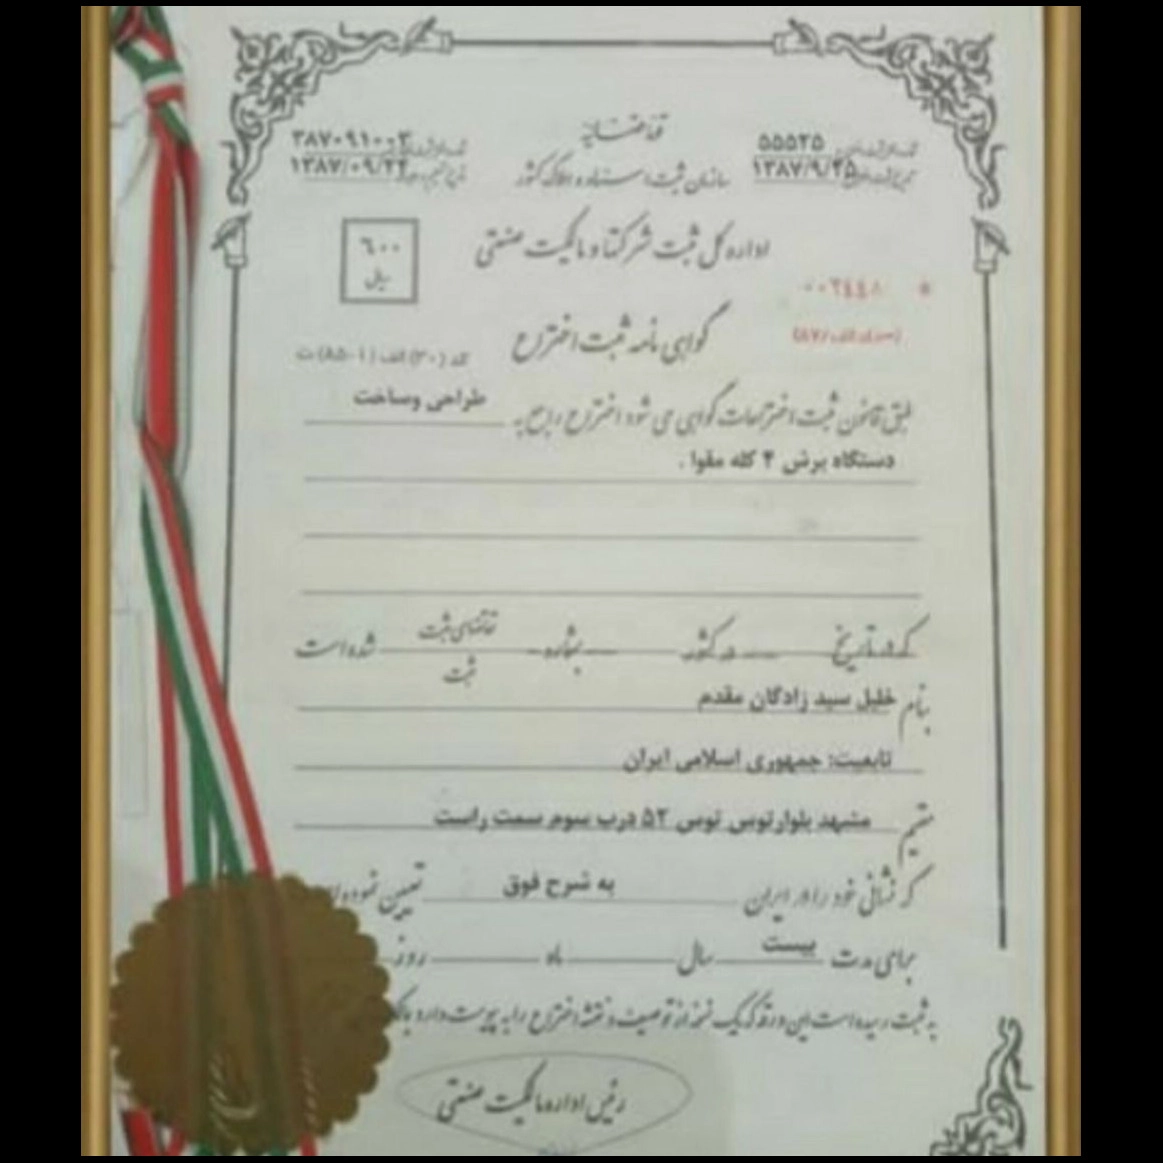 قوه قضائیه
شماره ثبت اختراع ۵۵۵۲۵
تاریخ ثبت اختراع ۱۳۸۷/۹/۲۵
شماره ثبت اظهارنامه ۳۸۷۰۹۱۰۰۳
تاریخ ثبت اظهارنامه ۱۳۸۷/۰۹/۲۴
سازمان ثبت اسناد و املاک کشور
اداره کل ثبت شرکتها و مالکیت صنعتی
۶۰۰
ریال
* ۰۰۲۴۴۸
(سری الف/۸۷)
گواهی نامه ثبت اختراع
کد (۳۰) الف (۱-۸۵) ت
طبق قانون ثبت اختراعات گواهی می شود اختراع راجع به طراحی وساخت
دستگاه برش ۴ کله مقوا .
که در تاریخ در کشور بشماره تقاضای ثبت شده است
ثبت
بنام خلیل سید زادگان مقدم
تابعیت: جمهوری اسلامی ایران
مقیم مشهد بلوارتوس توس ۵۲ درب سوم سمت راست
که نشانی خود را در ایران به شرح فوق تعیین نموده
برای مدت بیست سال ماه روز
به ثبت رسیده است این ورقه که یک نسخه از توصیف و نقشه اختراع را به پیوست دارد
رئیس اداره مالکیت صنعتی